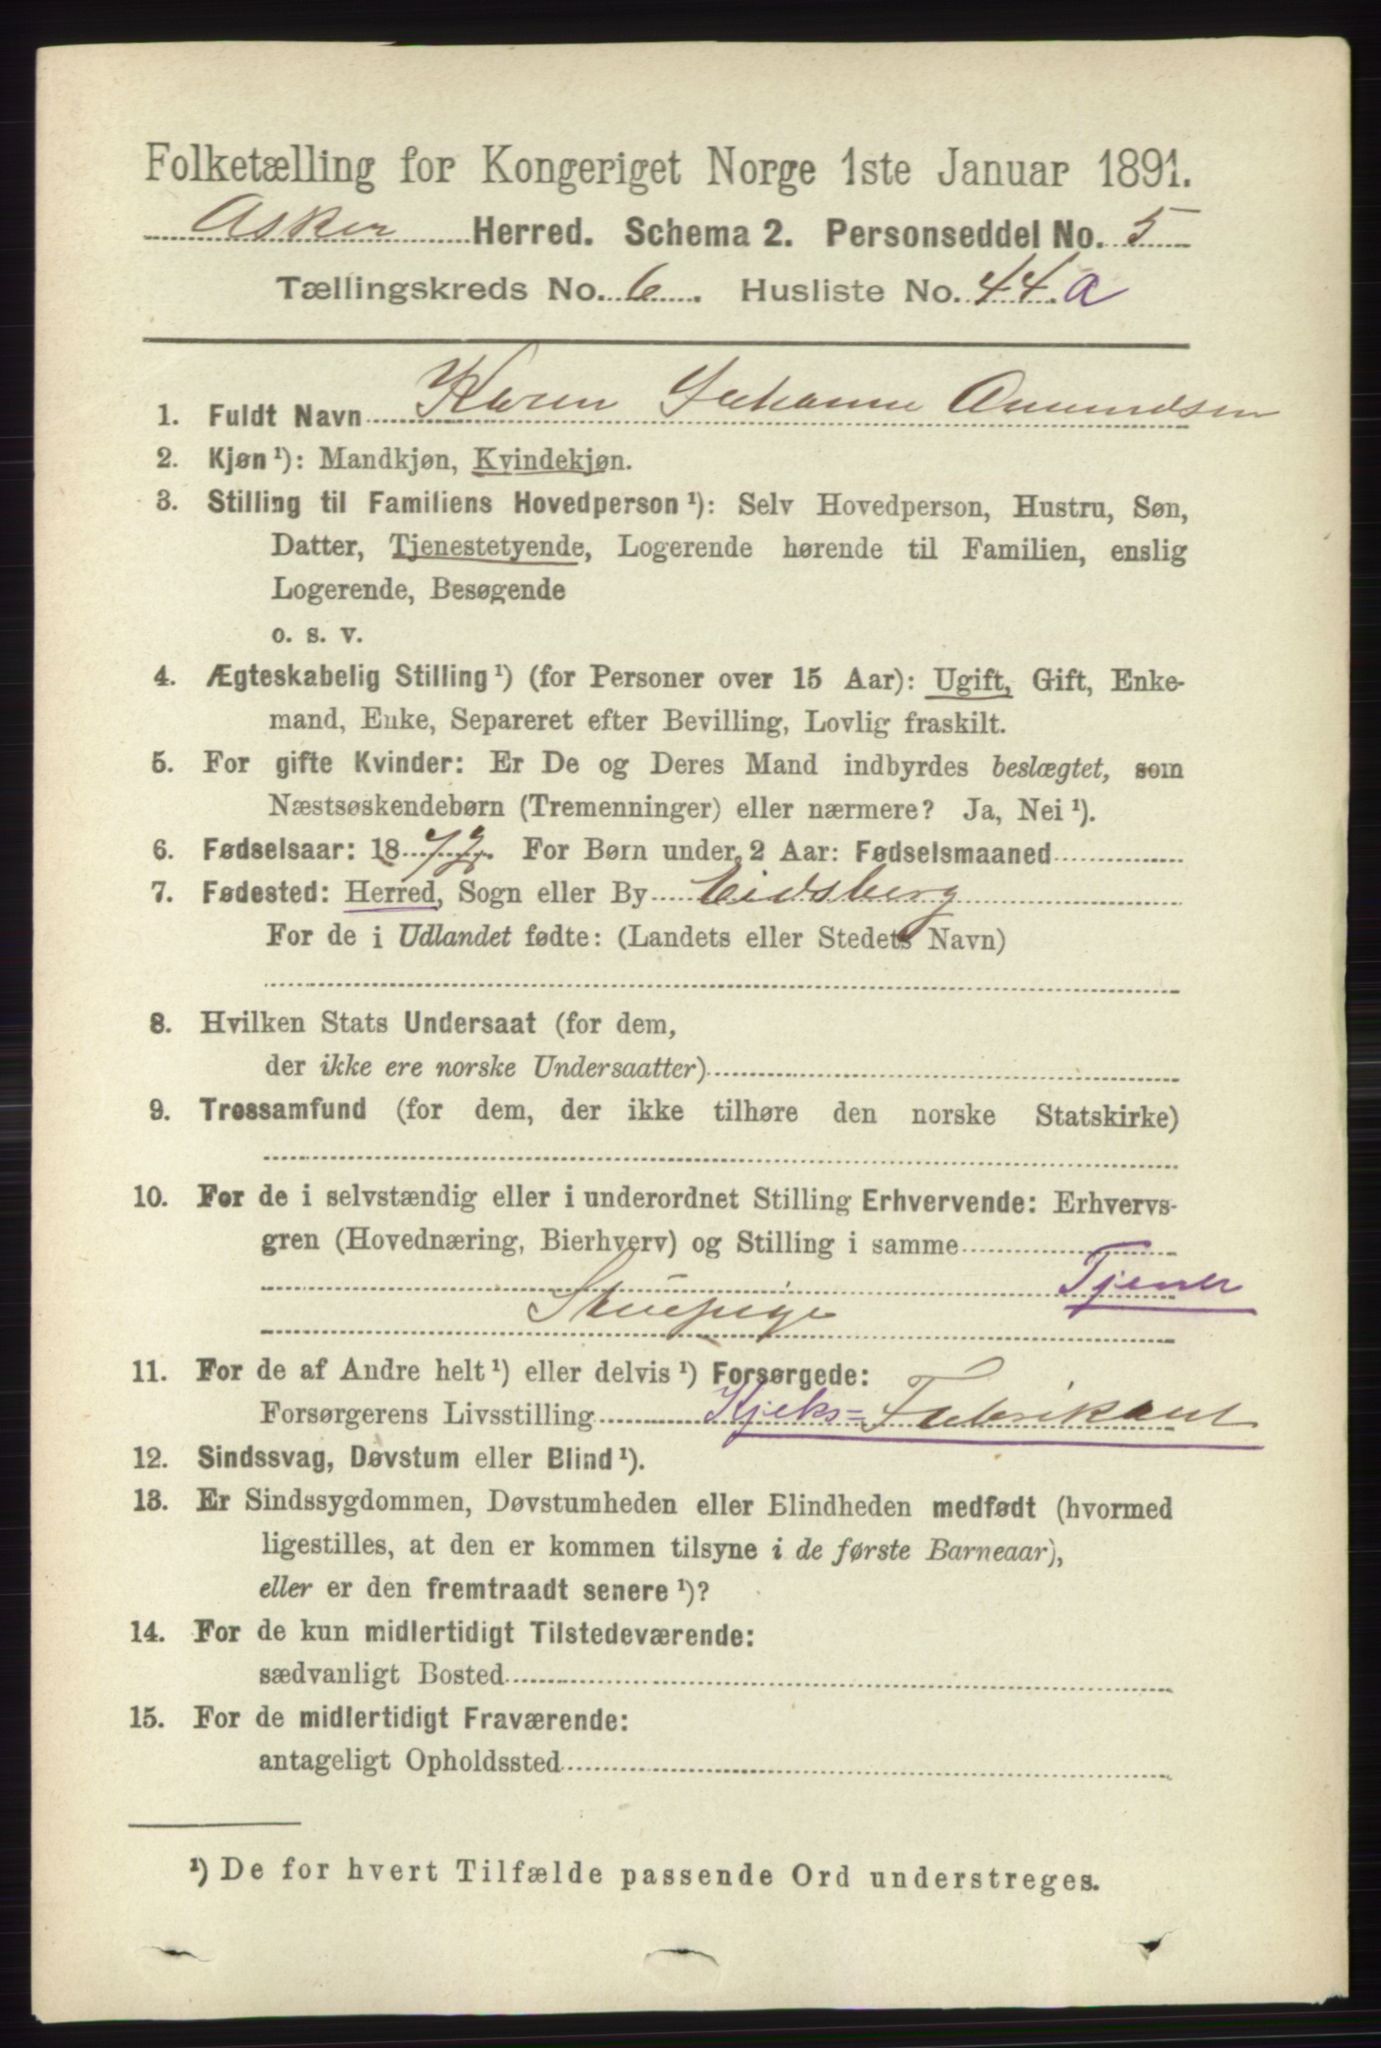 Folketælling for Kongeriget Norge 1ste Januar 1891.
Asker Herred. Schema 2. Personseddel No. 5
Tællingskreds No. 6. Husliste No. 44 a
1. Fuldt Navn Karen Johanne Amundsen
2. Kjøn ¹): Mandkjøn, Kvindekjøn.
3. Stilling til Familiens Hovedperson ¹): Selv Hovedperson, Hustru, Søn,
Datter, Tjenestetyende, Logerende hørende til Familien, enslig
Logerende, Besøgende
o. s. v.
4. Ægteskabelig Stilling ¹) (for Personer over 15 Aar): Ugift, Gift, Enke-
mand, Enke, Separeret efter Bevilling, Lovlig fraskilt.
5. For gifte Kvinder: Er De og Deres Mand indbyrdes beslægtet, som
Næstsøskendebørn (Tremenninger) eller nærmere? Ja, Nei ¹).
6. Fødselsaar: 1872. For Børn under 2 Aar: Fødselsmaaned
7. Fødested: Herred, Sogn eller By Eidsberg
For de i Udlandet fødte: (Landets eller Stedets Navn)
8. Hvilken Stats Undersaat (for dem,
der ikke ere norske Undersaatter)
9. Trossamfund (for dem, der ikke tilhøre den norske Statskirke)
10. For de i selvstændig eller i underordnet Stilling Erhvervende: Erhvervs-
gren (Hovednæring, Bierhverv) og Stilling i samme
Tjener
Stuepige
11. For de af Andre helt ¹) eller delvis ¹) Forsørgede:
Forsørgerens Livsstilling Kjeks=Fabrikant
12. Sindssvag, Døvstum eller Blind ¹).
13. Er Sindssygdommen, Døvstumheden eller Blindheden medfødt (hvormed
ligestilles, at den er kommen tilsyne i de første Barneaar),
eller er den fremtraadt senere ¹)?
14. For de kun midlertidigt Tilstedeværende:
sædvanligt Bosted
15. For de midlertidigt Fraværende:
antageligt Opholdssted
¹) De for hvert Tilfælde passende Ord understreges.